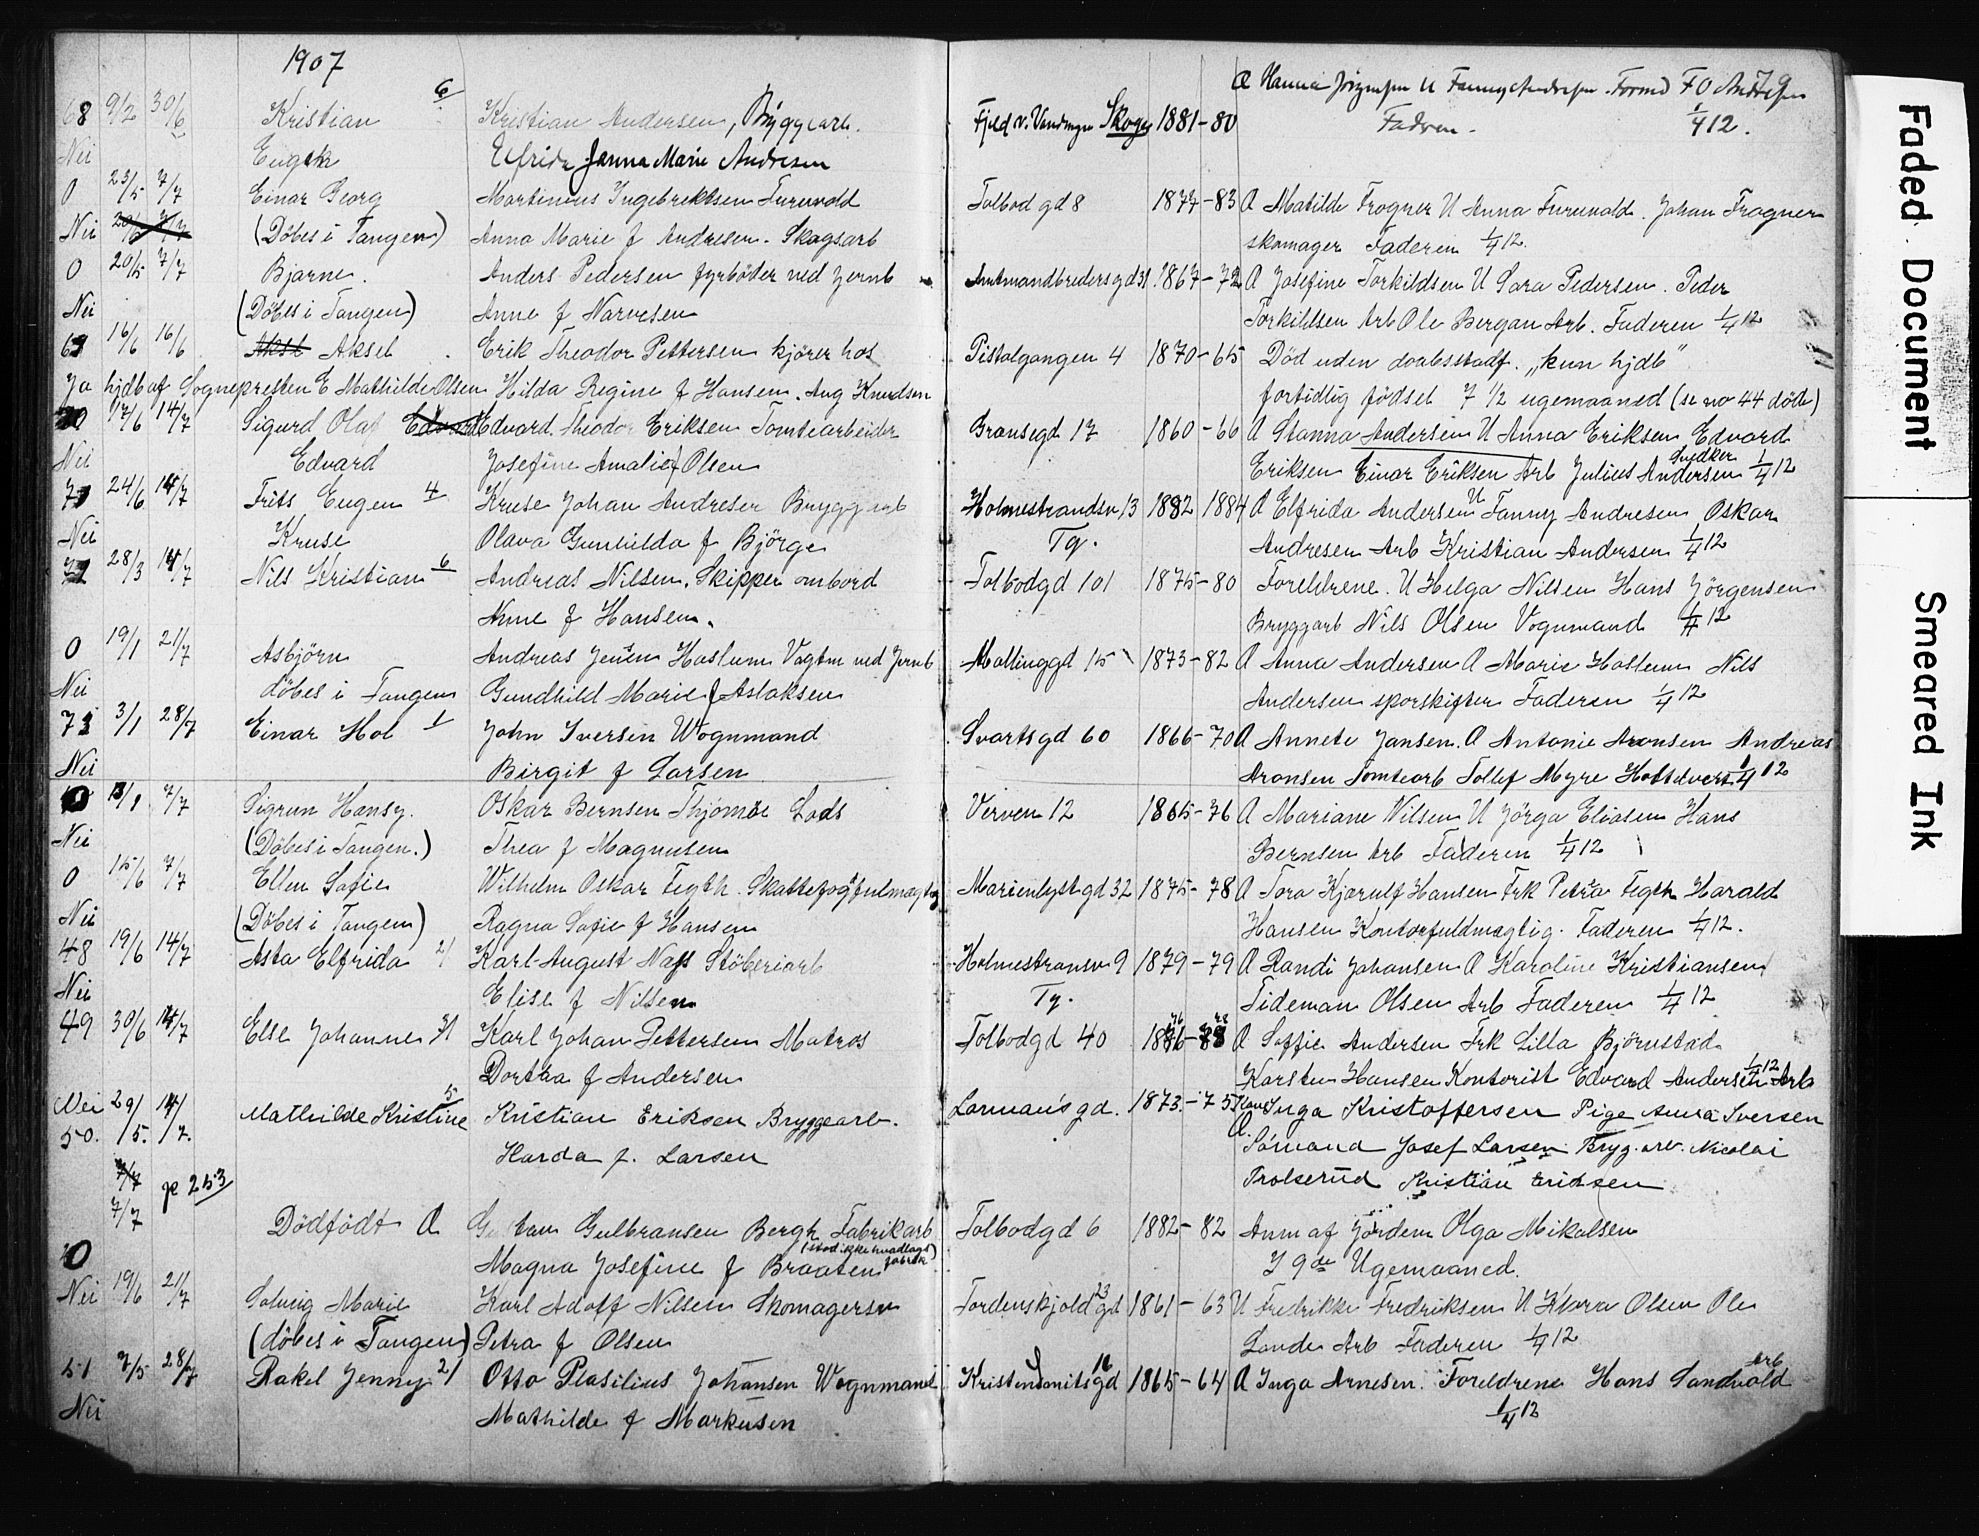 1907
68 9/2 30/6 Kristian 6 Kristian Andersen, Bryggearb. Fjeld v. Vandinge Skoger 1881-80 A Hanna Jörgensen U Fanny Andresen. Formd F O Andresen
Fadren. 1/4 12.
Nei Eugen Elfrida Janna Marie Andresen
0 23/5 7/7 Einar Georg Martinius Ingebrektsen Furuvold Tolbodgd 8 1874-83 A Matilde Frogner U Anna Furuvold. Johan Frogner
Nei (Döbes i Tangen) Anna Marie f Andresen. Skogsarb skomager Faderen 1/4 12.
0 20/5 7/7 Bjarne. Anders Pedersen fyrböter ved Jernb Amtmandbredersgd 31 1867-72 A Josefine Torkildsen U Sara Pedersen. Peder
Nei (Döbes i Tangen) Anne f Narvesen Torkildsen Arb Ole Bergan Arb. Faderen 1/4 12
69 16/6 16/6 Aksel Erik Theodor Pettersen kjörer hos Pistolgangen 4 1870-65 Död uden daabsstadf. „kun hjdb"
Ja hjdb af Sognepresten E Mathilde Olsen Hilda Regine f Hansen. Aug Knudsen fortidlig födsel 7 1/2 ugemaaned (se no 44 döde)
70 17/6 14/7 Sigurd Olaf Edvard Theodor Eriksen Tomtearbeider Gronsegd 17 1860-66 A Stanna Andersen U Anna Eriksen Edvard
Nei Edvard Josefine Amalie f Olsen Eriksen Einar Eriksen Arb Julius Andersen Snedker 1/4 12
71 24/6 14/7 Frits Eugen 4 Kruse Johan Andresen Bryggarb Holmestrandsv 13 1882 1884 A Elfrida Andersen U Fanny Andresen Oskar
Nei Kruse Olava Gunhilda f Björge Tg. Andresen Arb Kristian Andersen 1/4 12
72 28/3 14/7 Nils Kristian 6 Andreas Nilsen. Skipper ombord Tolbodgd 101 1875-80 Foreldrene. U Helga Nilsen Hans Jörgensen
Anne f Hansen. Bryggarb Nils Olsen Vognmand 1/4 12
0 19/1 21/7 Asbjörn Andreas Jensen Haslum Vagtm ved Jernb Mallinggd 15 1873-82 A Anna Andersen A Marie Haslum Nils
Nei döbes i Tangen Gundhild Marie f Aslaksen Andersen sporskifter Faderen 1/4 12
73 3/1 28/7 Einar Hol 1 John Iversen Wognmand Svartsgd 60 1866-70 A Annete Jansen. A Antonie Aronsen Andreas
Nei Birgit f Larsen Aronsen Tomtearb Tollef Myre 1/4 12
0 7/7 Sigrun Hansy. Oskar Bernsen Thjömöe Lods Verven 12 1865-76 A Mariane Nilsen U Jörga Eliasen Hans
Nei (Döbes i Tangen.) Thea f Magnusen Bernsen Arb Faderen 1/4 12
0 15/6 7/7 Ellen Sofie Wilhelm Oskar Tegth. Skattefogdfulmægtig Marienlystgd 32 1875-78 A Tora Kjærulf Hansen Frk Petra Tegth Harald
Nei (Döbes i Tangen) Ragna Sofie f Hansen Hansen Kontorfuldmægtig. Faderen 1/4 12.
48 19/6 14/7 Asta Elfrida 2/ Karl August Næss Stöberiarb Holmestransv 9 1879-79 A Randi Johansen A Karoline Kristiansen
Nei Elise f Nilsen Tg. Tideman Olsen Arb Faderen 1/4 12
49 30/6 14/7 Else Johanne 3/ Karl Johan Pettersen Matros Tolbodgd 40 A Soffie Andersen Frk Lilla Björnstad
Dortea f Andersen Karsten Hansen Kontorist Edvard Andersen Arb 1/4 12
Nei 29/5. 14/7. Mathilde Kristine 5 Kristian Eriksen Bryggearb. Larmansgd. 1873-75 Inga Kristoffersen Pige Anna Iversen
50. Harda f. Larsen Sömand Josef Larsen Bryg.arb. Nicolai
7/7 p 253 Trolserud Kristian Eriksen
7/7 Dödfödt A Gulbransen Bergh Fabrikarb Tolbodgd 6 1882-82 Anm af Jordem Olga Mikalsen
0 Magna Josefine f Braaten (stod ikke hvadlags fabrik) I 9de Ugemaaned.
Nei 19/6 21/7 Solveig Marie Karl Adolf Nilsen Skomagersv Tordenskjoldgd 23 1861-63 U Fredrikke Fredriksen U Klara Olsen Ole
(döbes i Tangen) Petra f Olsen Lande Arb Faderen 1/4 12
51 7/5 28/7 Rakel Jenny 2/ Otto Plasilius Johansen Wognmand Kristensmitsgd 16 1865-64 A Inga Arnesen. Foreldrene Hans Sandvold Arb
Nei Mathilde f Markusen 1/4 12
Faded Document Smeared Ink